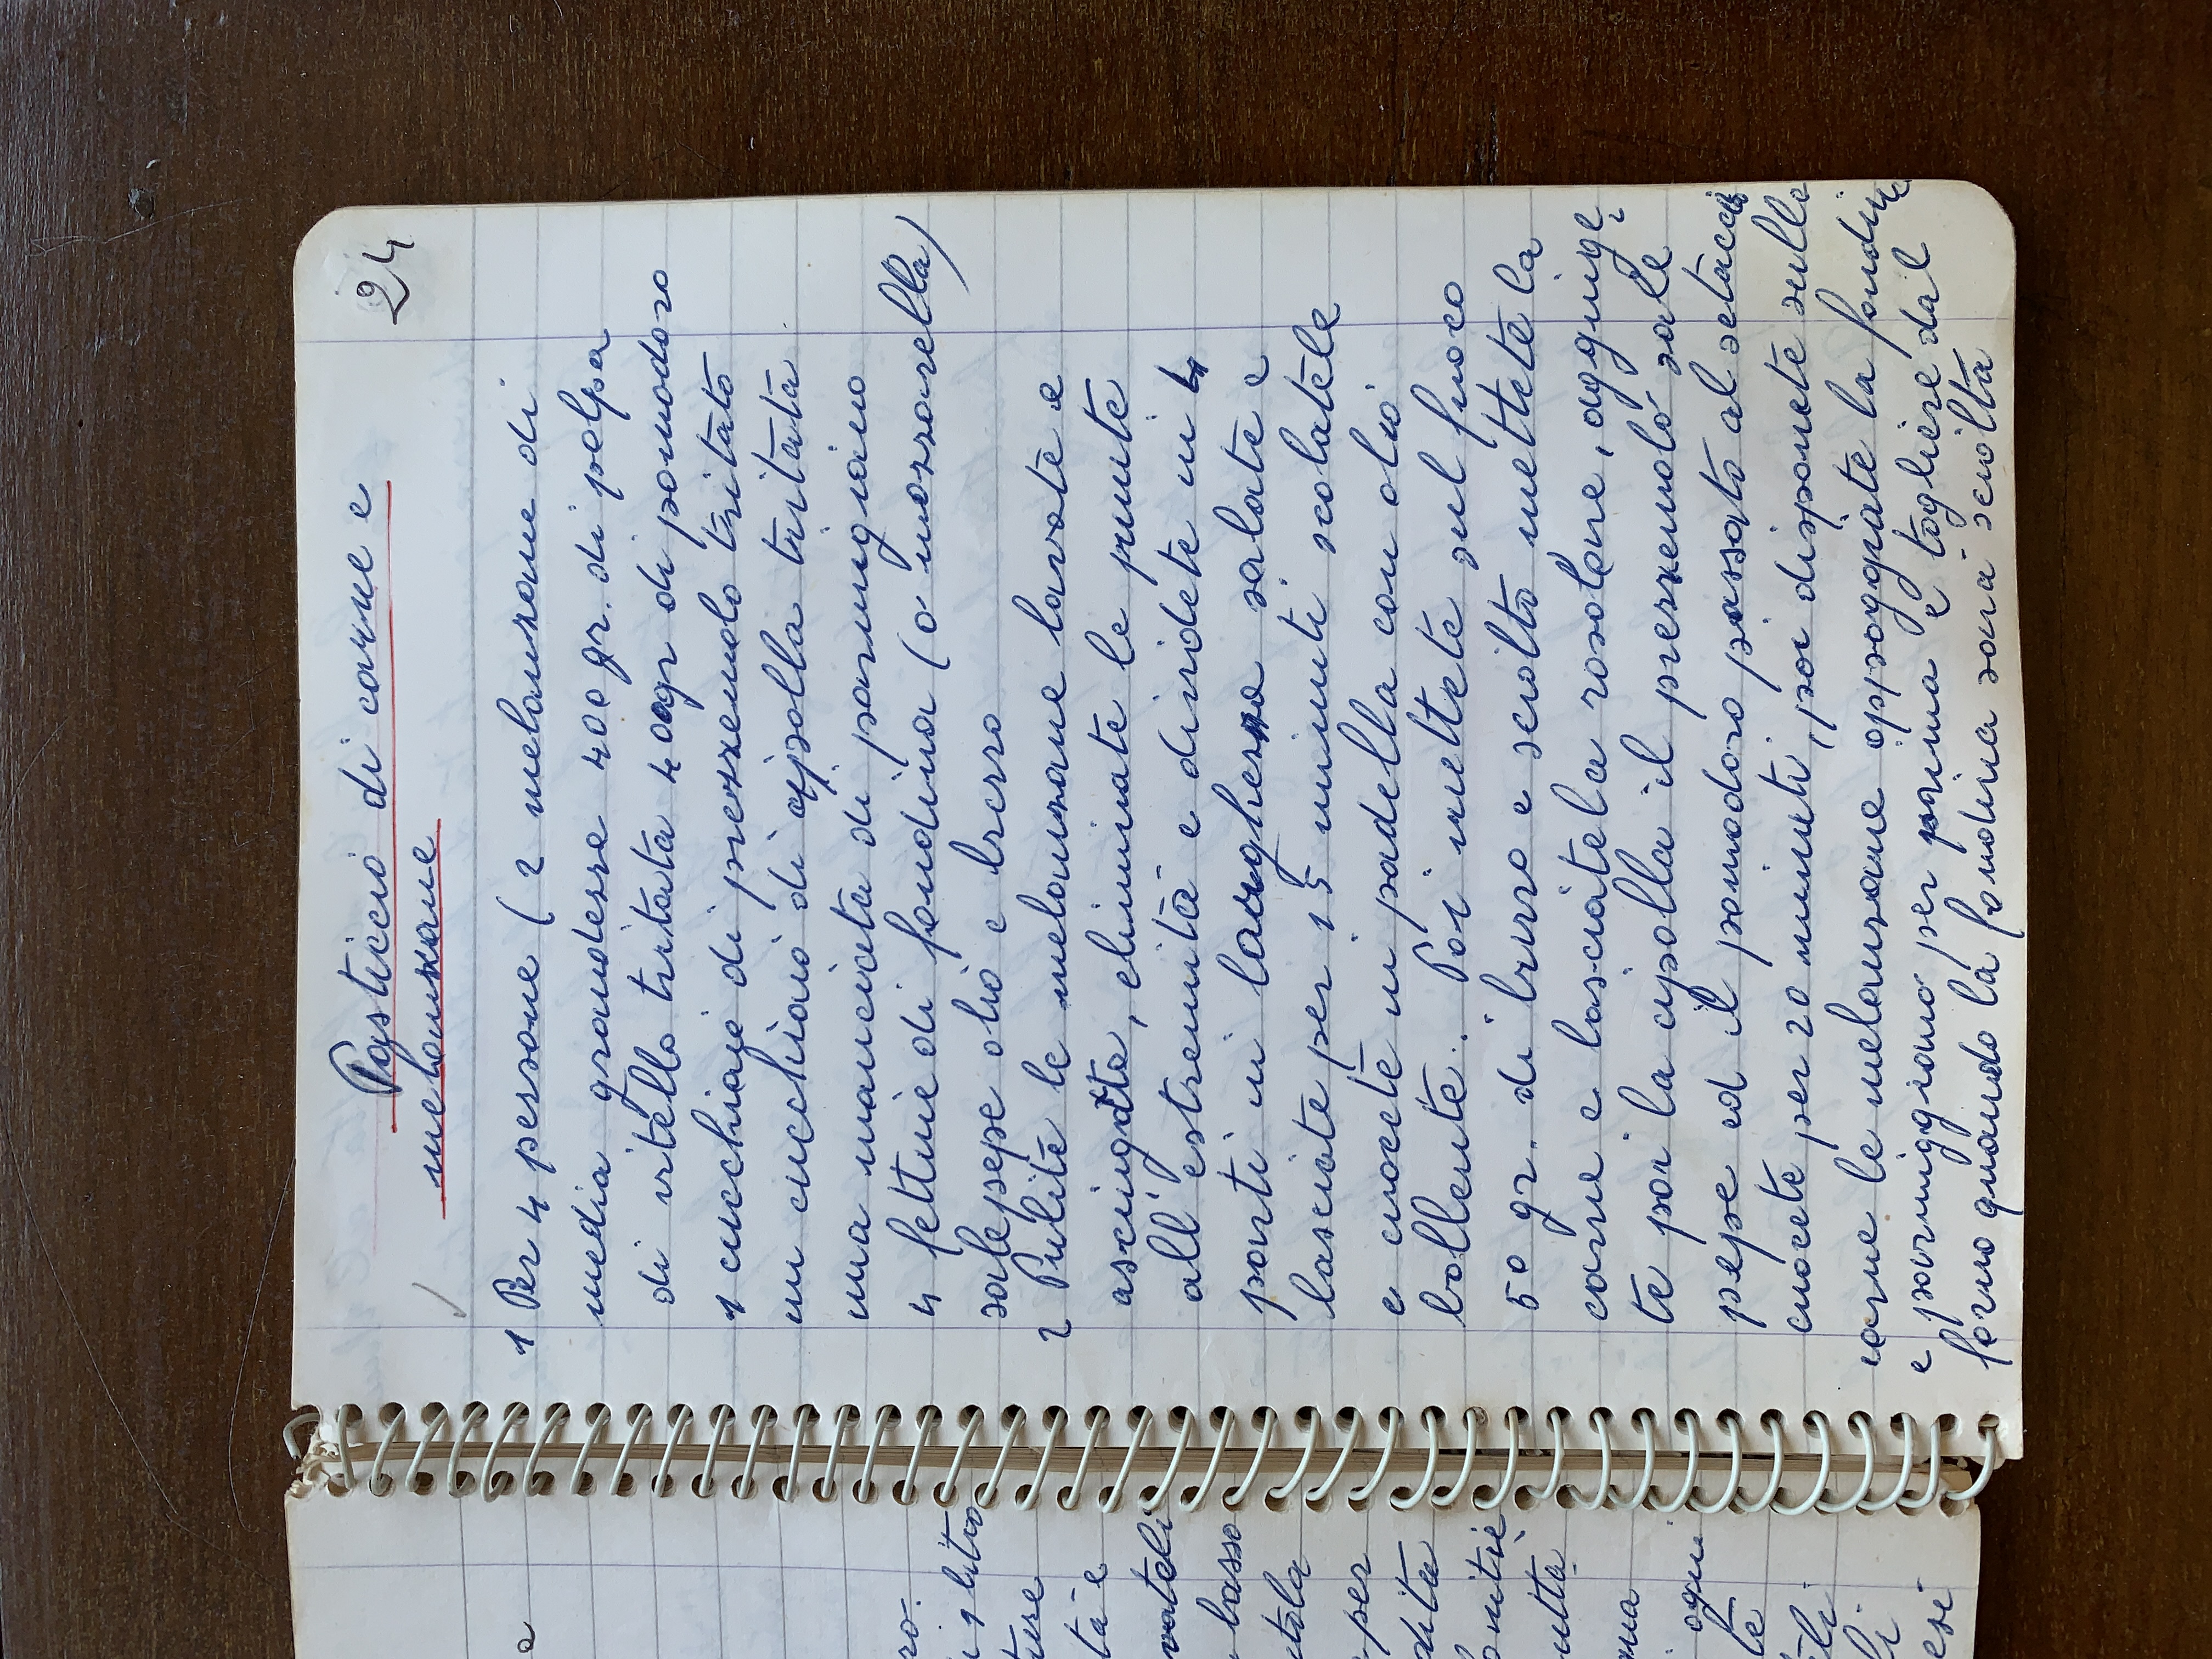 a
ro.
i 1 litro
ture
tà e
vateli
basso
tola
per
dita
nitie
utta
qua
ogni
te
eli
li
esi
Pasticcio di carne e
melanzane
24
1 Per 4 persone ( 2 melanzane di
media grandezza 400 gr. di polpa
di vitello tritata 400gr di pomodoro
1 cucchiaio di prezzemolo tritato
un cucchiaio di cipolla tritata
una manciata di parmigiano
4 fettine di fondina (o mozzarella)
sale pepe olio e burro
2 Pulite le melanzane lavate e
asciugate, eliminate le punte
all'estremità e dividete in 4
parti in larghezza salate e
lasciate per 15 minuti scolatele
e cuocete in padella con olio
bollente. Poi mettete sul fuoco
50 gr. di burro e sciolto mettete la
carne e lasciatela rosolare, aggiunge
te poi la cipolla il prezzemolo sale
pepe ed il pomodoro passato al setaccio
cuocete per 20 minuti, poi disponete sulla
carne le melanzane appoggiate la fondina
e parmiggiano per prima e togliere dal
forno quando la fondina sarà sciolta